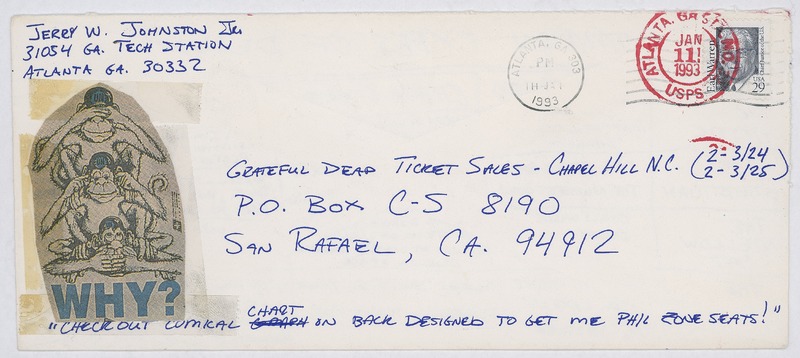 JERRY W. JOHNSTON JR.
31054 GA. TECH STATION
ATLANTA GA. 30332
ATLANTA, GA 303
PM
1993
ATLANTA, GA
JAN
11
1993
USPS
Earl Warren
Chief Justice of the U.S.
USA
29
GRATEFUL DEAD TICKET SALES - CHAPEL HILL N.C. (2 - 3/24
2 - 3/25)
P.O. BOX C-S 8190
SAN RAFAEL, CA. 94912
WHY?
"CHECK OUT LUMICAL CHART GRAPH ON BACK DESIGNED TO GET ME PHIL ZONE SEATS!"